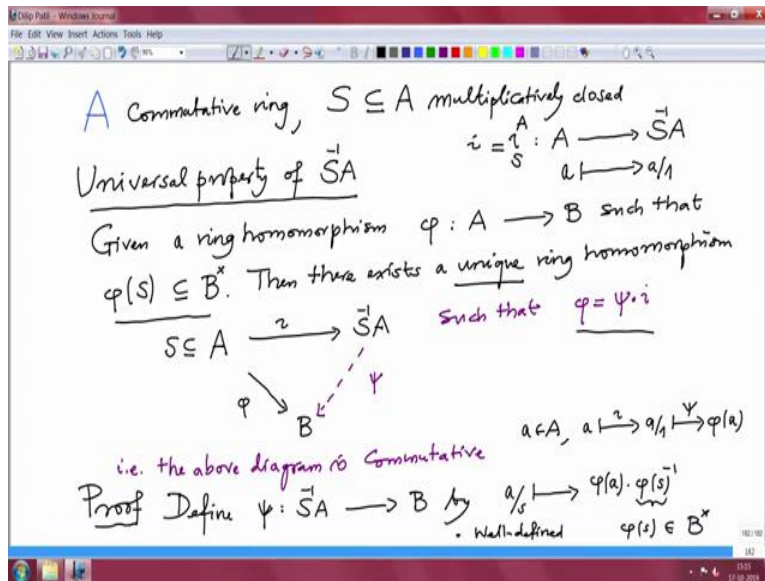 Dilip Patil - Windows Journal
File Edit View Insert Actions Tools Help
A Commutative ring, S ⊆ A multiplicatively closed
i = i_S^A : A ⟶ S⁻¹A
a ⟼ a/1
Universal property of S⁻¹A
Given a ring homomorphism φ : A ⟶ B such that
φ(S) ⊆ B^×. Then there exists a unique ring homomorphism
such that φ = ψ∘i
S ⊆ A ⟶ S⁻¹A
i
φ ψ
B
a ∈ A, a ⟼ a/1 ⟼ φ(a)
i ψ
i.e. the above diagram is Commutative
Proof Define ψ : S⁻¹A ⟶ B by a/s ⟼ φ(a)·φ(s)⁻¹
• Well-defined φ(s) ∈ B^×
182/182
182
15:15
17-10-2018